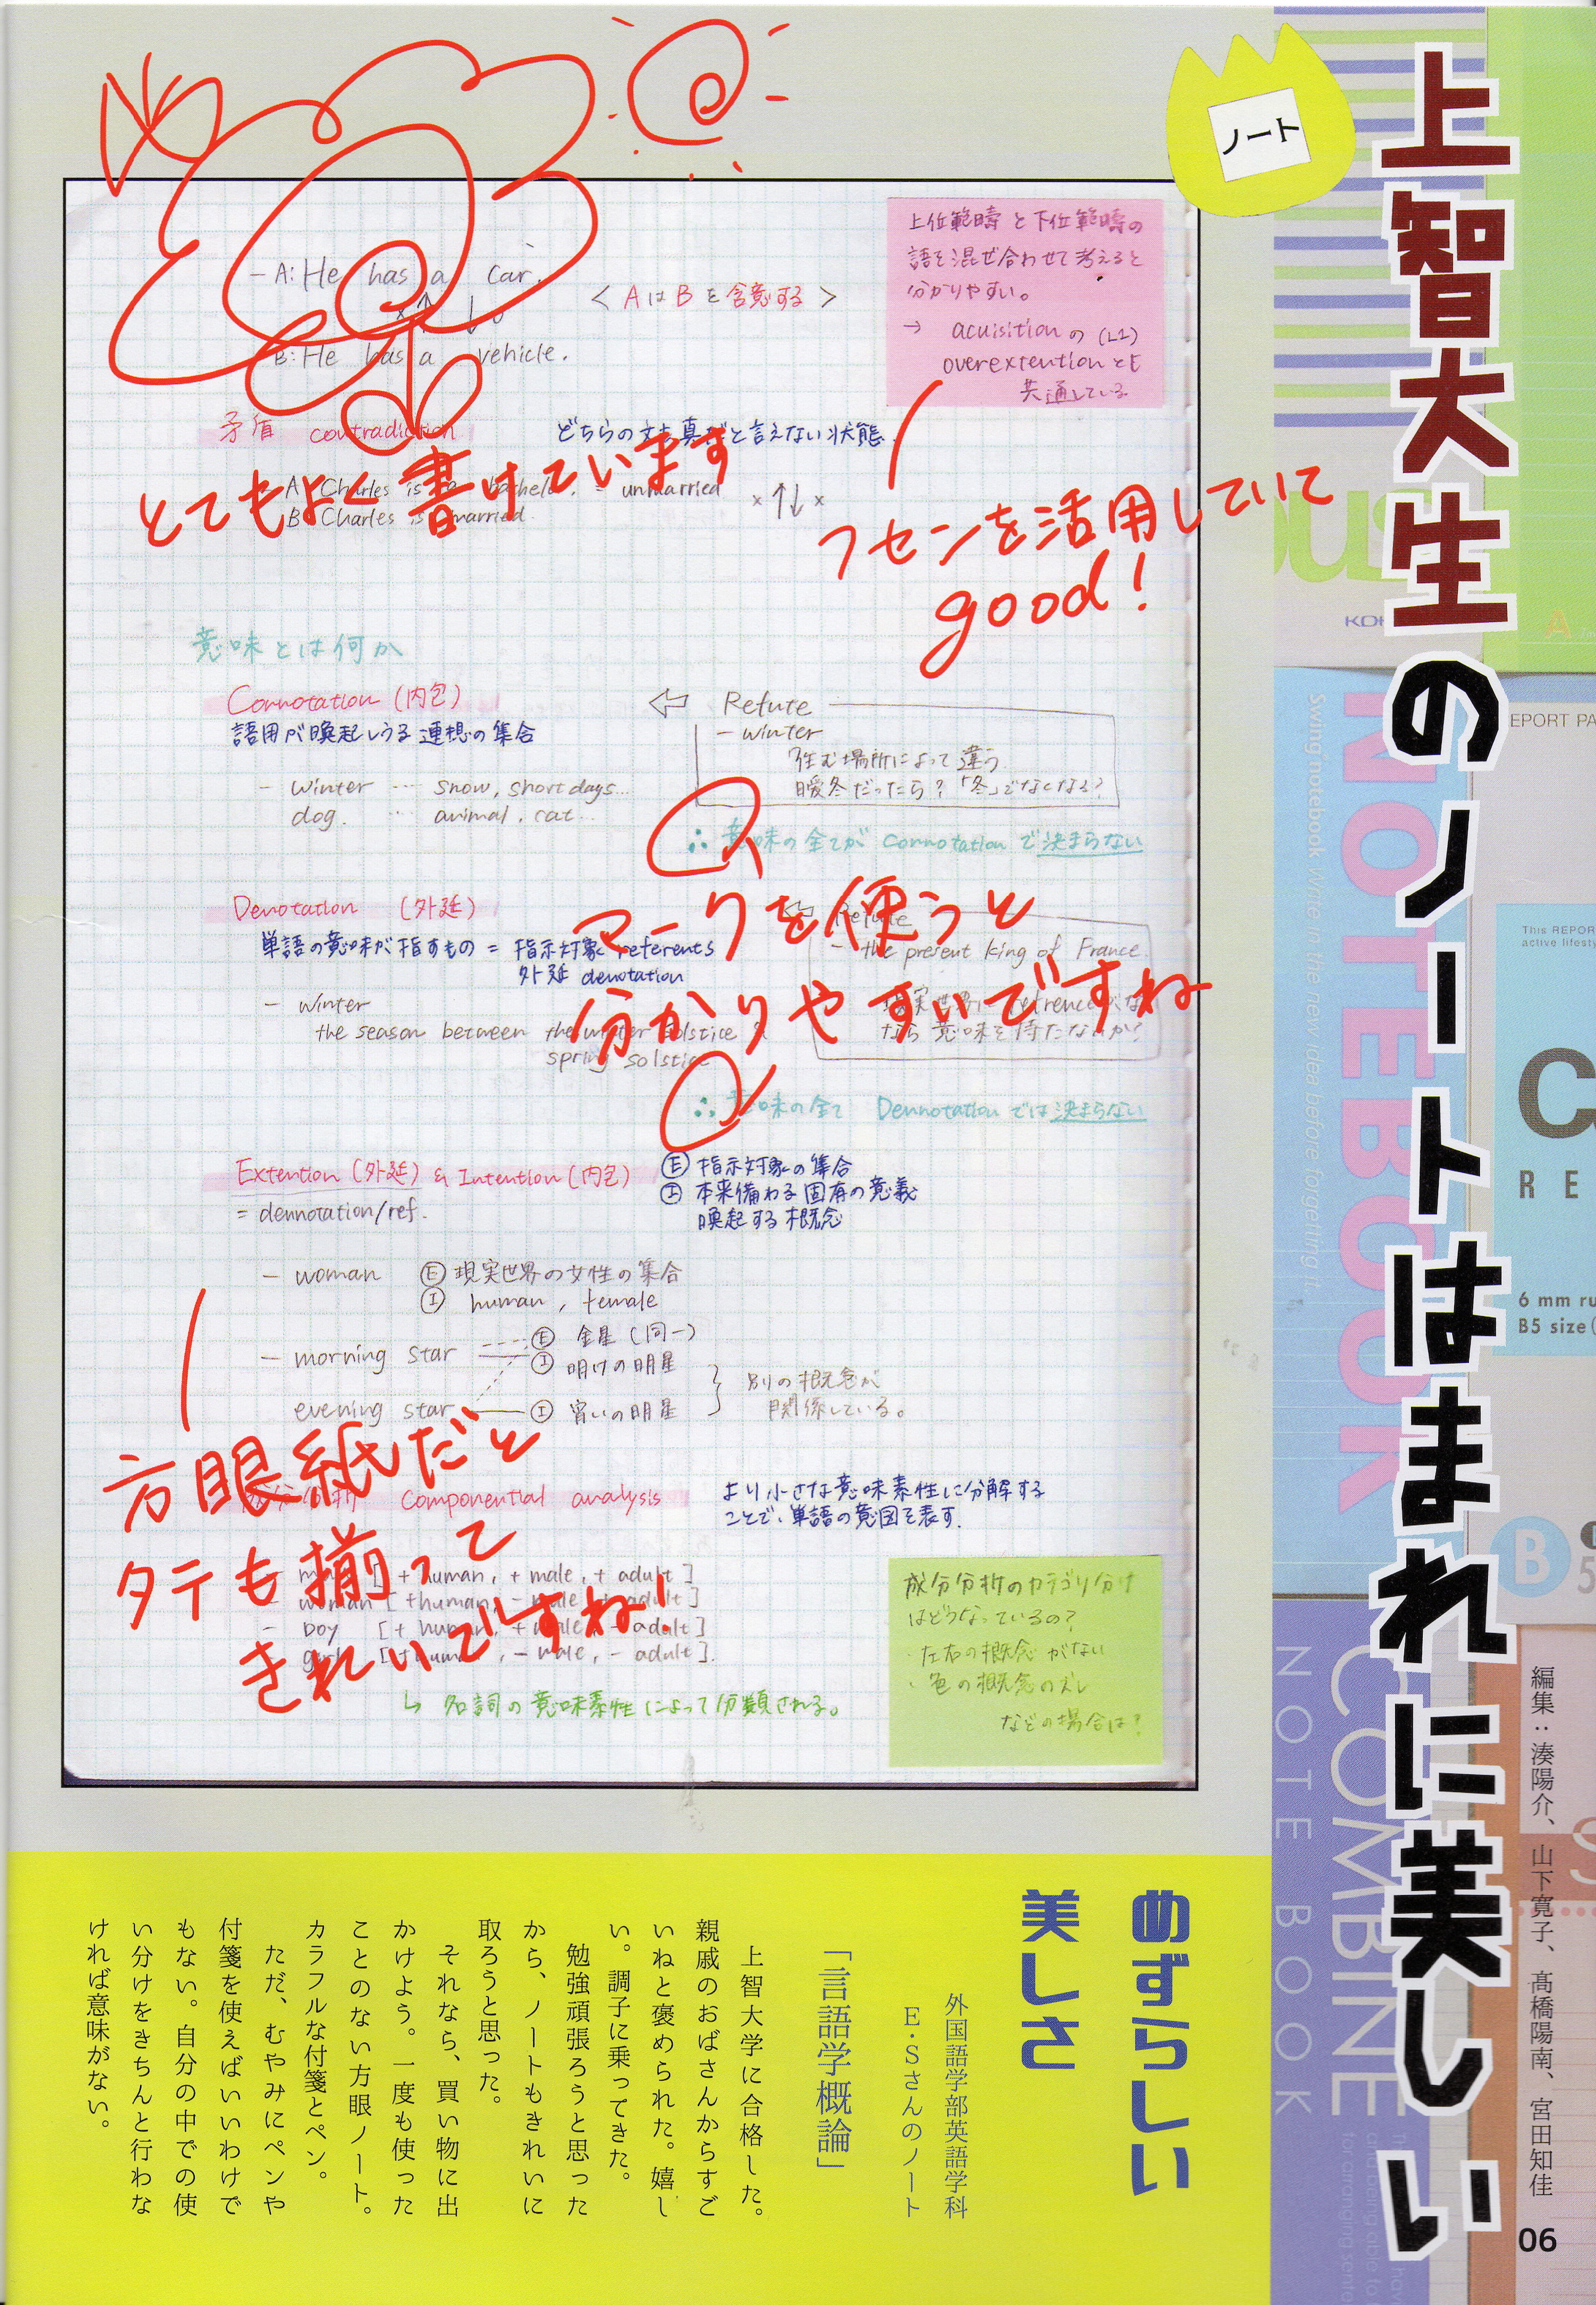 上智大生のノートはまれに美しい
ノート
編集：湊陽介、山下寛子、髙橋陽南、宮田知佳
06
上位範疇 と下位範疇の
語を混ぜ合わせて考えると
分かりやすい。
→ acuisition の (L1)
overextention とも
共通している
- A: He has a car.
< AはBを含意する >
B: He has a vehicle.
矛盾 contradiction
どちらの文も真だと言えない状態.
A: Charles is a bachelor. = unmarried
B: Charles is married.
× ↑↓ ×
とてもよく書けています
フセンを活用していて
good!
意味とは何か
Connotation (内包)
語用が喚起しうる連想の集合
- winter … snow, short days…
dog. … animal, cat…
⇦ Refute
- winter
住む場所によって違う
暖冬だったら?「冬」でなくなる?
∴ 意味の全てが connotation で決まらない
マークを使うと
分かりやすいですね
Denotation (外延)
単語の意味が指すもの = 指示対象 referents
外延 denotation
- winter
the season between the winter solstice &
spring solstice
Refute
- the present king of France.
現実世界に refrence がない
なら意味を持たないか?
∴ 意味の全て Dennotation では決まらない
Extention (外延) & Intention (内包)
= dennotation/ref.
Ⓔ 指示対象の集合
Ⓘ 本来備わる固有の意義
喚起する概念
- woman Ⓔ 現実世界の女性の集合
Ⓘ human, female
- morning star Ⓔ 金星 (同一)
Ⓘ 明けの明星
evening star Ⓘ 宵いの明星
別の概念が
関係している。
方眼紙だと
タテも揃って
きれいですね!
成分分析 Componential analysis
より小さな意味素性に分解する
ことで、単語の意図を表す.
- man [ + human, + male, + adult ]
- woman [ + human, - male, + adult ]
- boy [ + human, + male, - adult ]
- girl [ + human, - male, - adult ].
↳ 名詞の意味素性によって分類される。
成分分析のカテゴリ分け
はどうなっているの?
・左右の概念がない
・色の概念のズレ
などの場合は?
めずらしい
美しさ
外国語学部英語学科
E・Sさんのノート
「言語学概論」
上智大学に合格した。
親戚のおばさんからすご
いねと褒められた。嬉し
い。調子に乗ってきた。
勉強頑張ろうと思った
から、ノートもきれいに
取ろうと思った。
それなら、買い物に出
かけよう。一度も使った
ことのない方眼ノート。
カラフルな付箋とペン。
ただ、むやみにペンや
付箋を使えばいいわけで
もない。自分の中での使
い分けをきちんと行わな
ければ意味がない。
NOTEBOOK
Swing notebook Write in the new idea before forgetting it.
EPORT PA
This REPOR
active lifesty
RE
6 mm ru
B5 size
B
COMBINE
NOTE BOOK
A